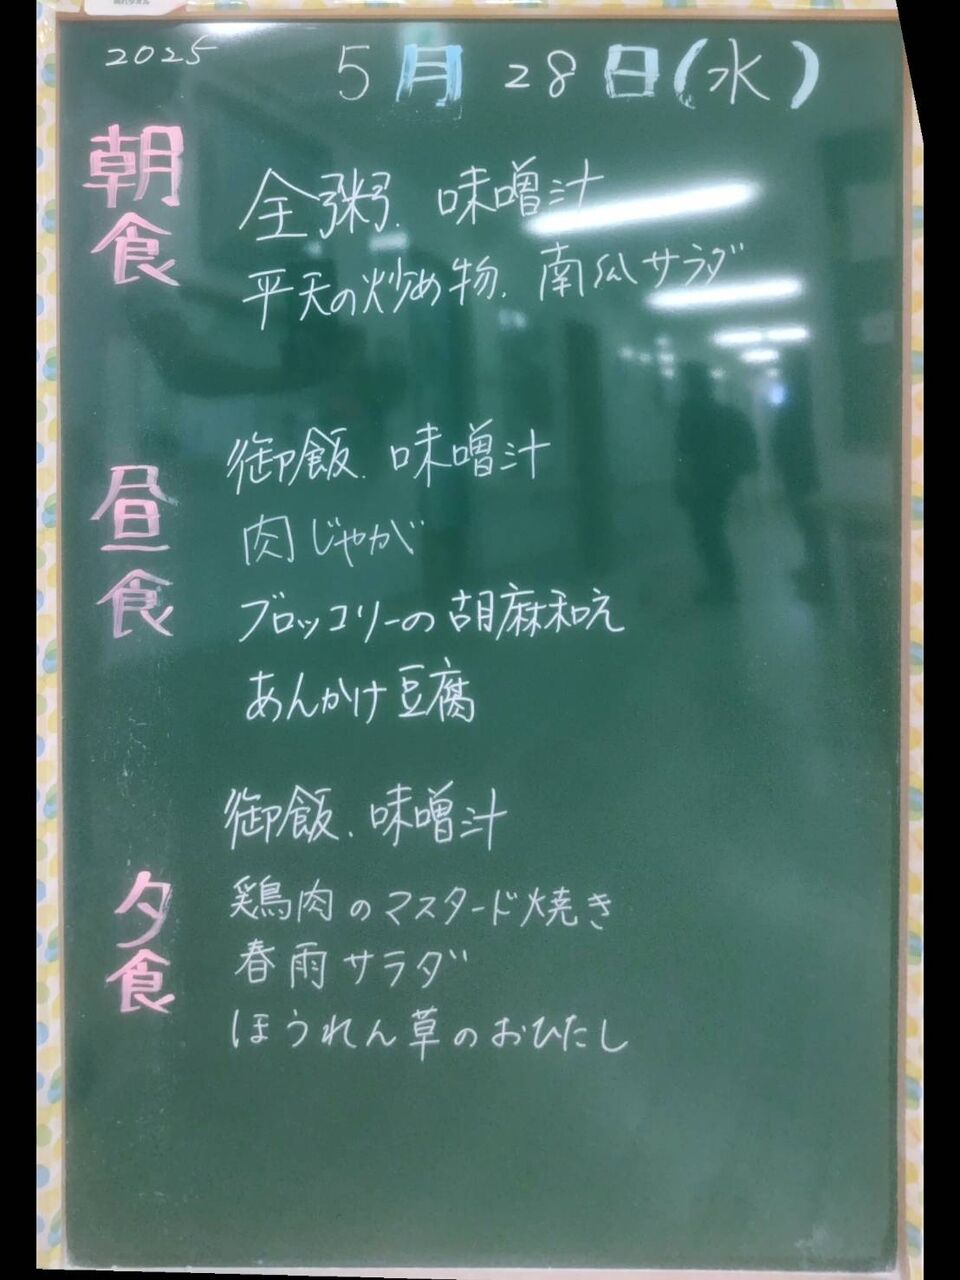 2025 5月28日(水)
朝食
全粥、味噌汁
平天の炒め物、南瓜サラダ
昼食
御飯、味噌汁
肉じゃが
ブロッコリーの胡麻和え
あんかけ豆腐
夕食
御飯、味噌汁
鶏肉のマスタード焼き
春雨サラダ
ほうれん草のおひたし